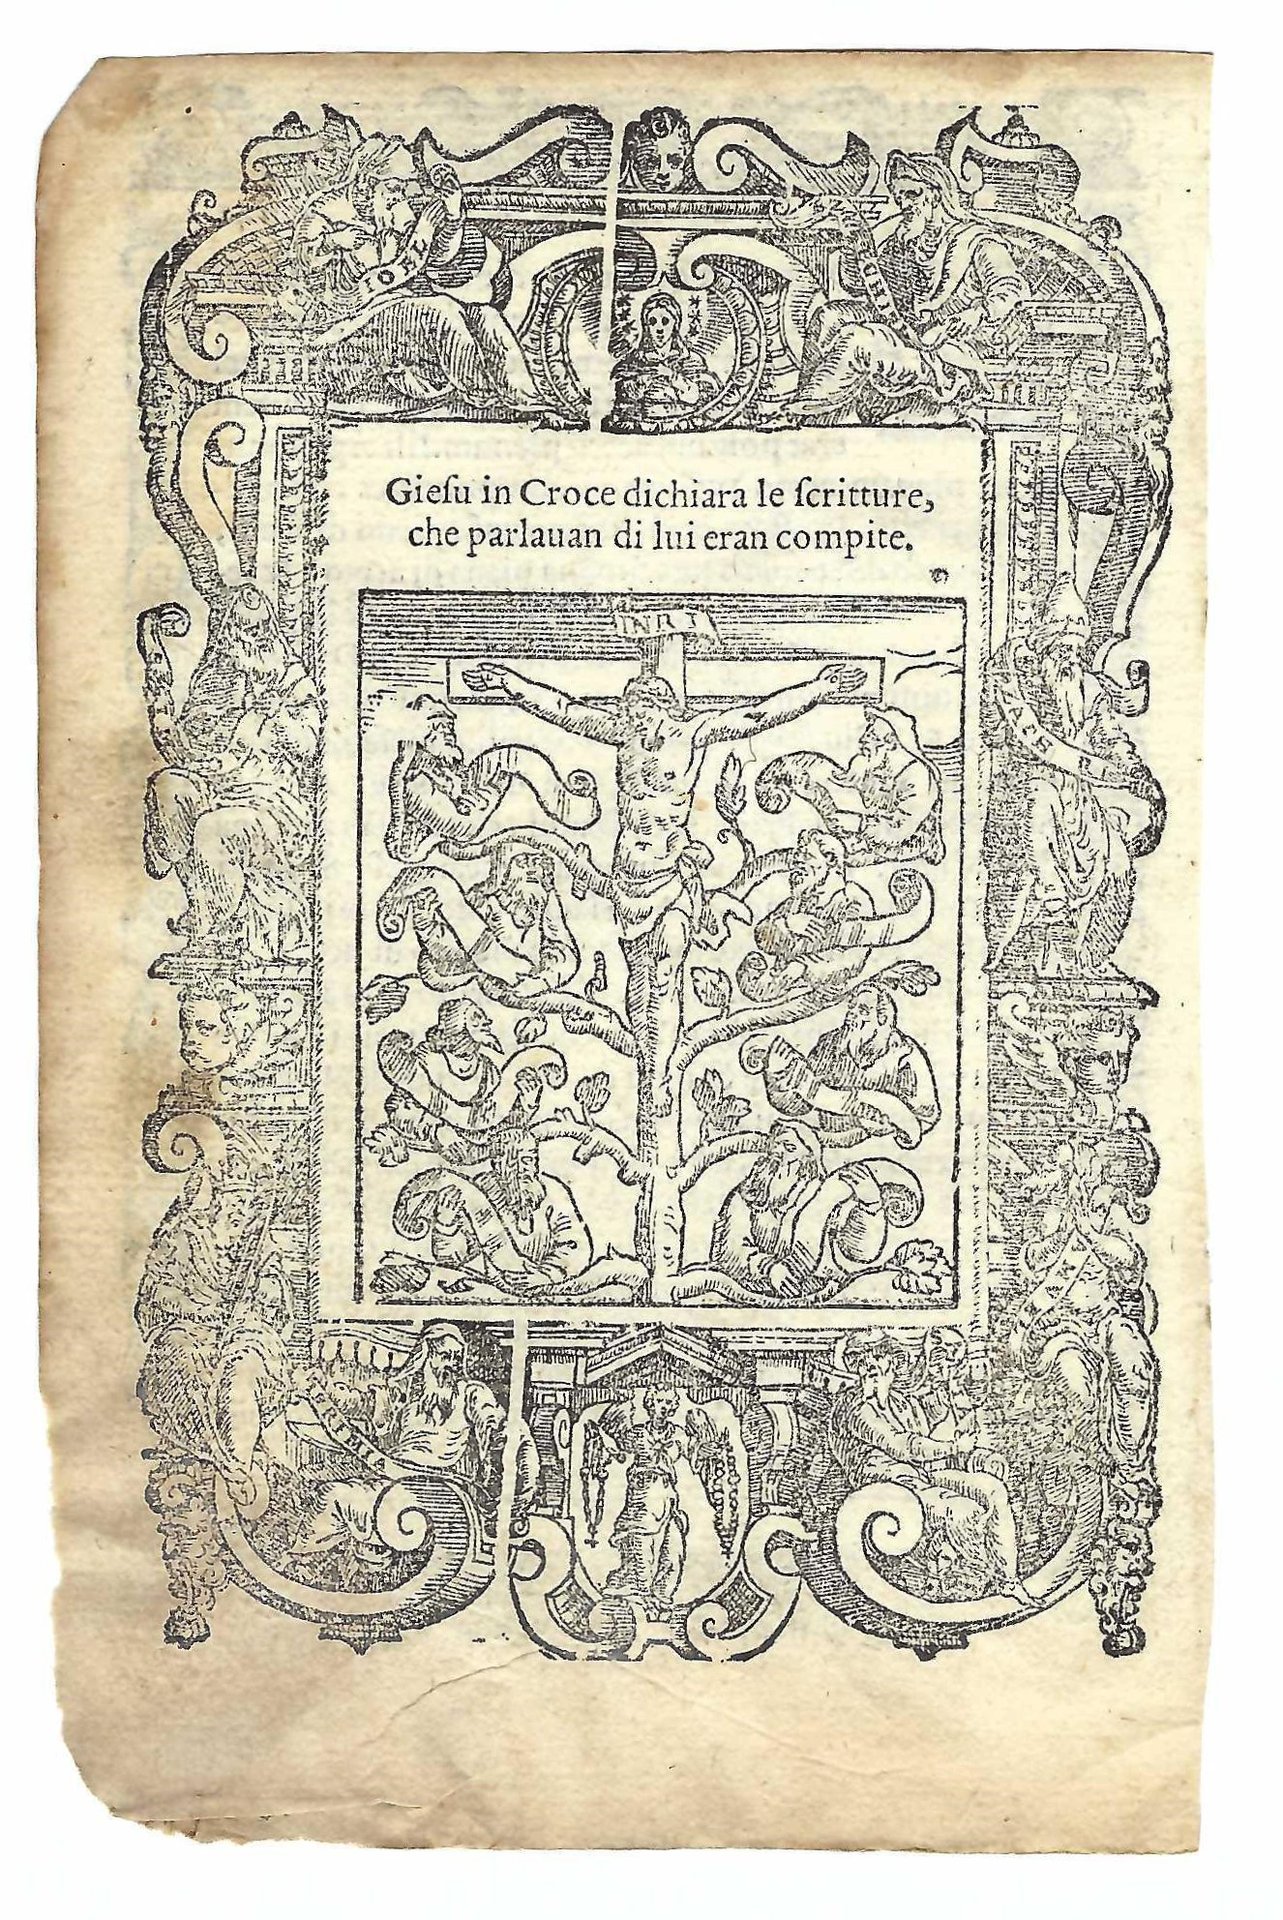 IOEL
Gieſu in Croce dichiara le ſcritture,
che parlauan di lui eran compite.
INRI